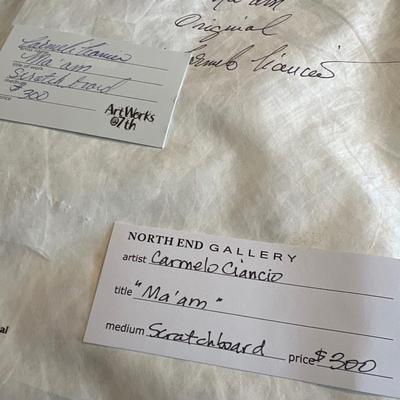 Ma'am
Original
Carmelo Ciancio
Carmelo Ciancio
Ma'am
Scratchboard
$300
ArtWorks
@7th
NORTH END GALLERY
artist Carmelo Ciancio
title "Ma'am"
medium Scratchboard price $300
al